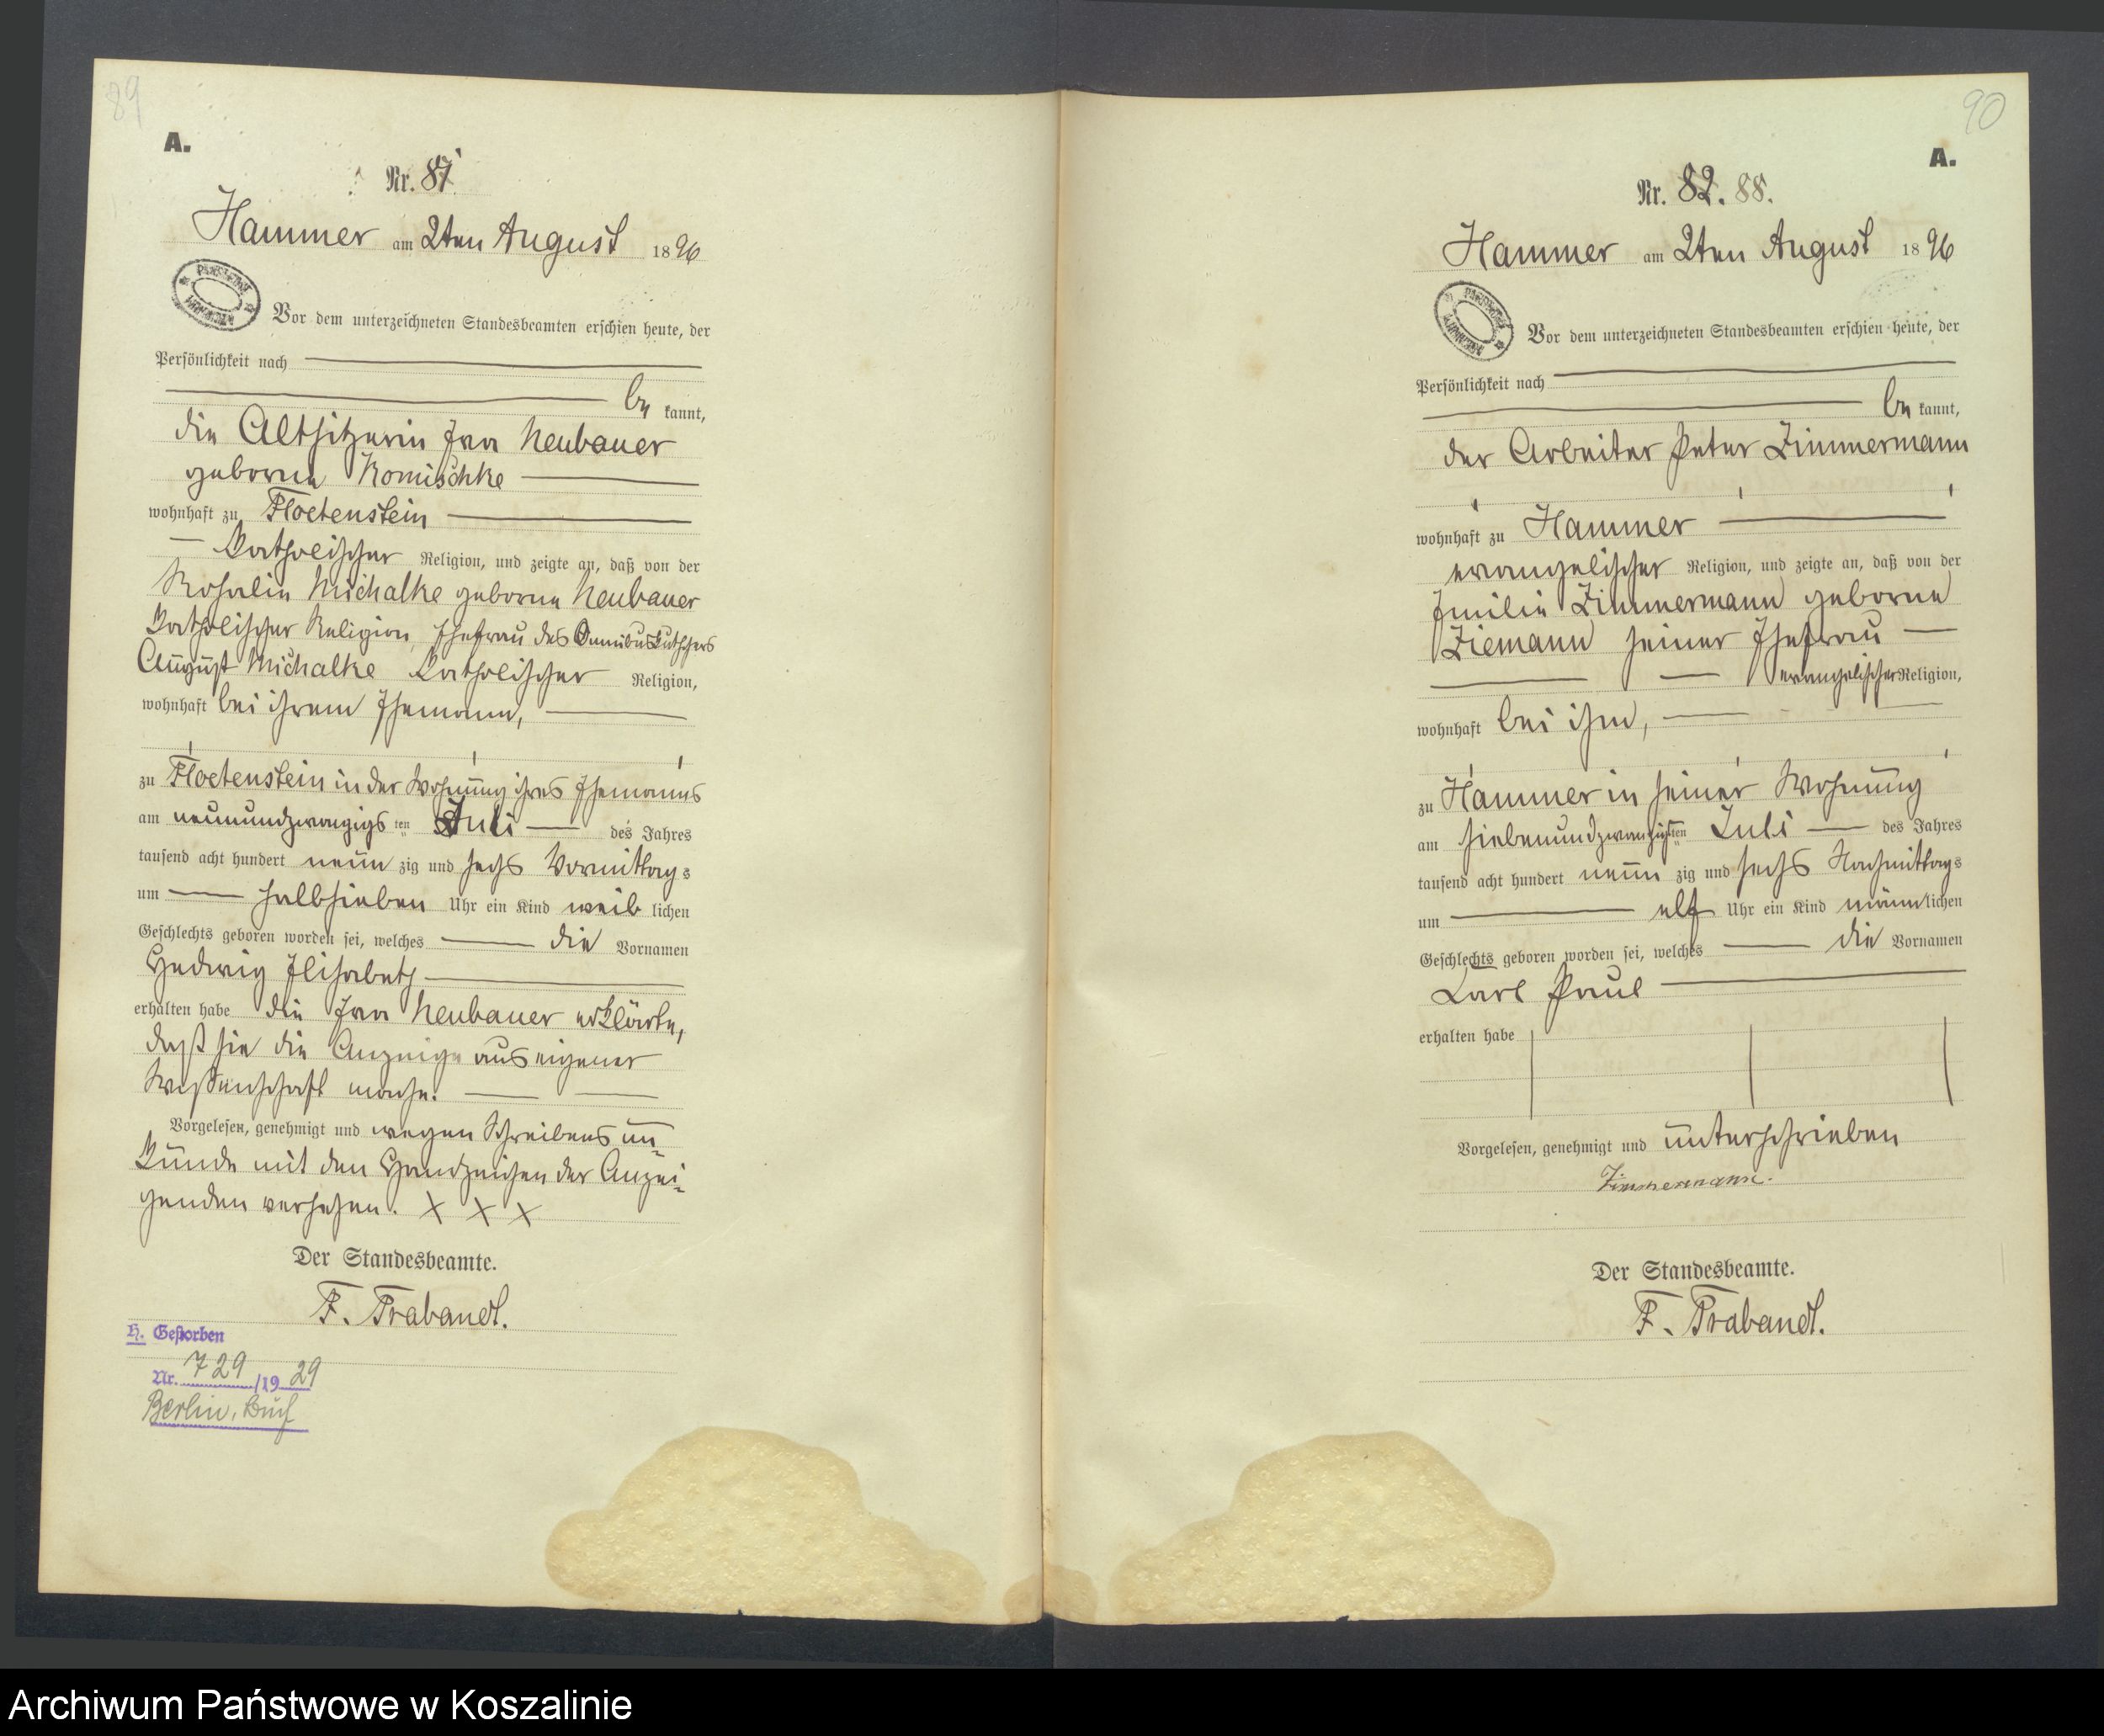 89
A.
Nr. 87.
Hammer am 2ten August 1896
Vor dem unterzeichneten Standesbeamten erschien heute, der
Persönlichkeit nach
be kannt,
die Altsitzerin Eva Neubauer
geborne Komischke
wohnhaft zu Floetenstein
katholischer Religion, und zeigte an, daß von der
Rosalie Michalke geborne Neubauer
katholischer Religion, Ehefrau des Omnibuskutschers
August Michalke katholischer Religion,
wohnhaft bei ihrem Ehemann,
zu Floetenstein in der Wohnung ihres Ehemanns
am neunundzwanzigs ten Juli des Jahres
tausend acht hundert neun zig und sechs Vormittags
um halbsieben Uhr ein Kind weib lichen
Geschlechts geboren worden sei, welches die Vornamen
Hedwig Elisabeth
erhalten habe die Eva Neubauer erklärte,
daß sie die Anzeige aus eigener
Wissenschaft mache.
Vorgelesen, genehmigt und wegen Schreibens un-
kunde mit den Handzeichen der Anzei-
genden versehen. X X X
Der Standesbeamte.
F. Trabandt.
H. Gestorben
Nr. 729 /1929
Berlin, Buch
90
A.
Nr. 82. 88.
Hammer am 2ten August 1896
Vor dem unterzeichneten Standesbeamten erschien heute, der
Persönlichkeit nach
be kannt,
der Arbeiter Peter Zimmermann
wohnhaft zu Hammer
evangelischer Religion, und zeigte an, daß von der
Emilie Zimmermann geborne
Ziemann seiner Ehefrau
evangelischer Religion,
wohnhaft bei ihm,
zu Hammer in seiner Wohnung
am siebenundzwanzigsten Juli des Jahres
tausend acht hundert neun zig und sechs Nachmittags
um elf Uhr ein Kind männlichen
Geschlechts geboren worden sei, welches die Vornamen
Carl Paul
erhalten habe
Vorgelesen, genehmigt und unterschrieben
Zimmermann.
Der Standesbeamte.
F. Trabandt.
Archiwum Państwowe w Koszalinie